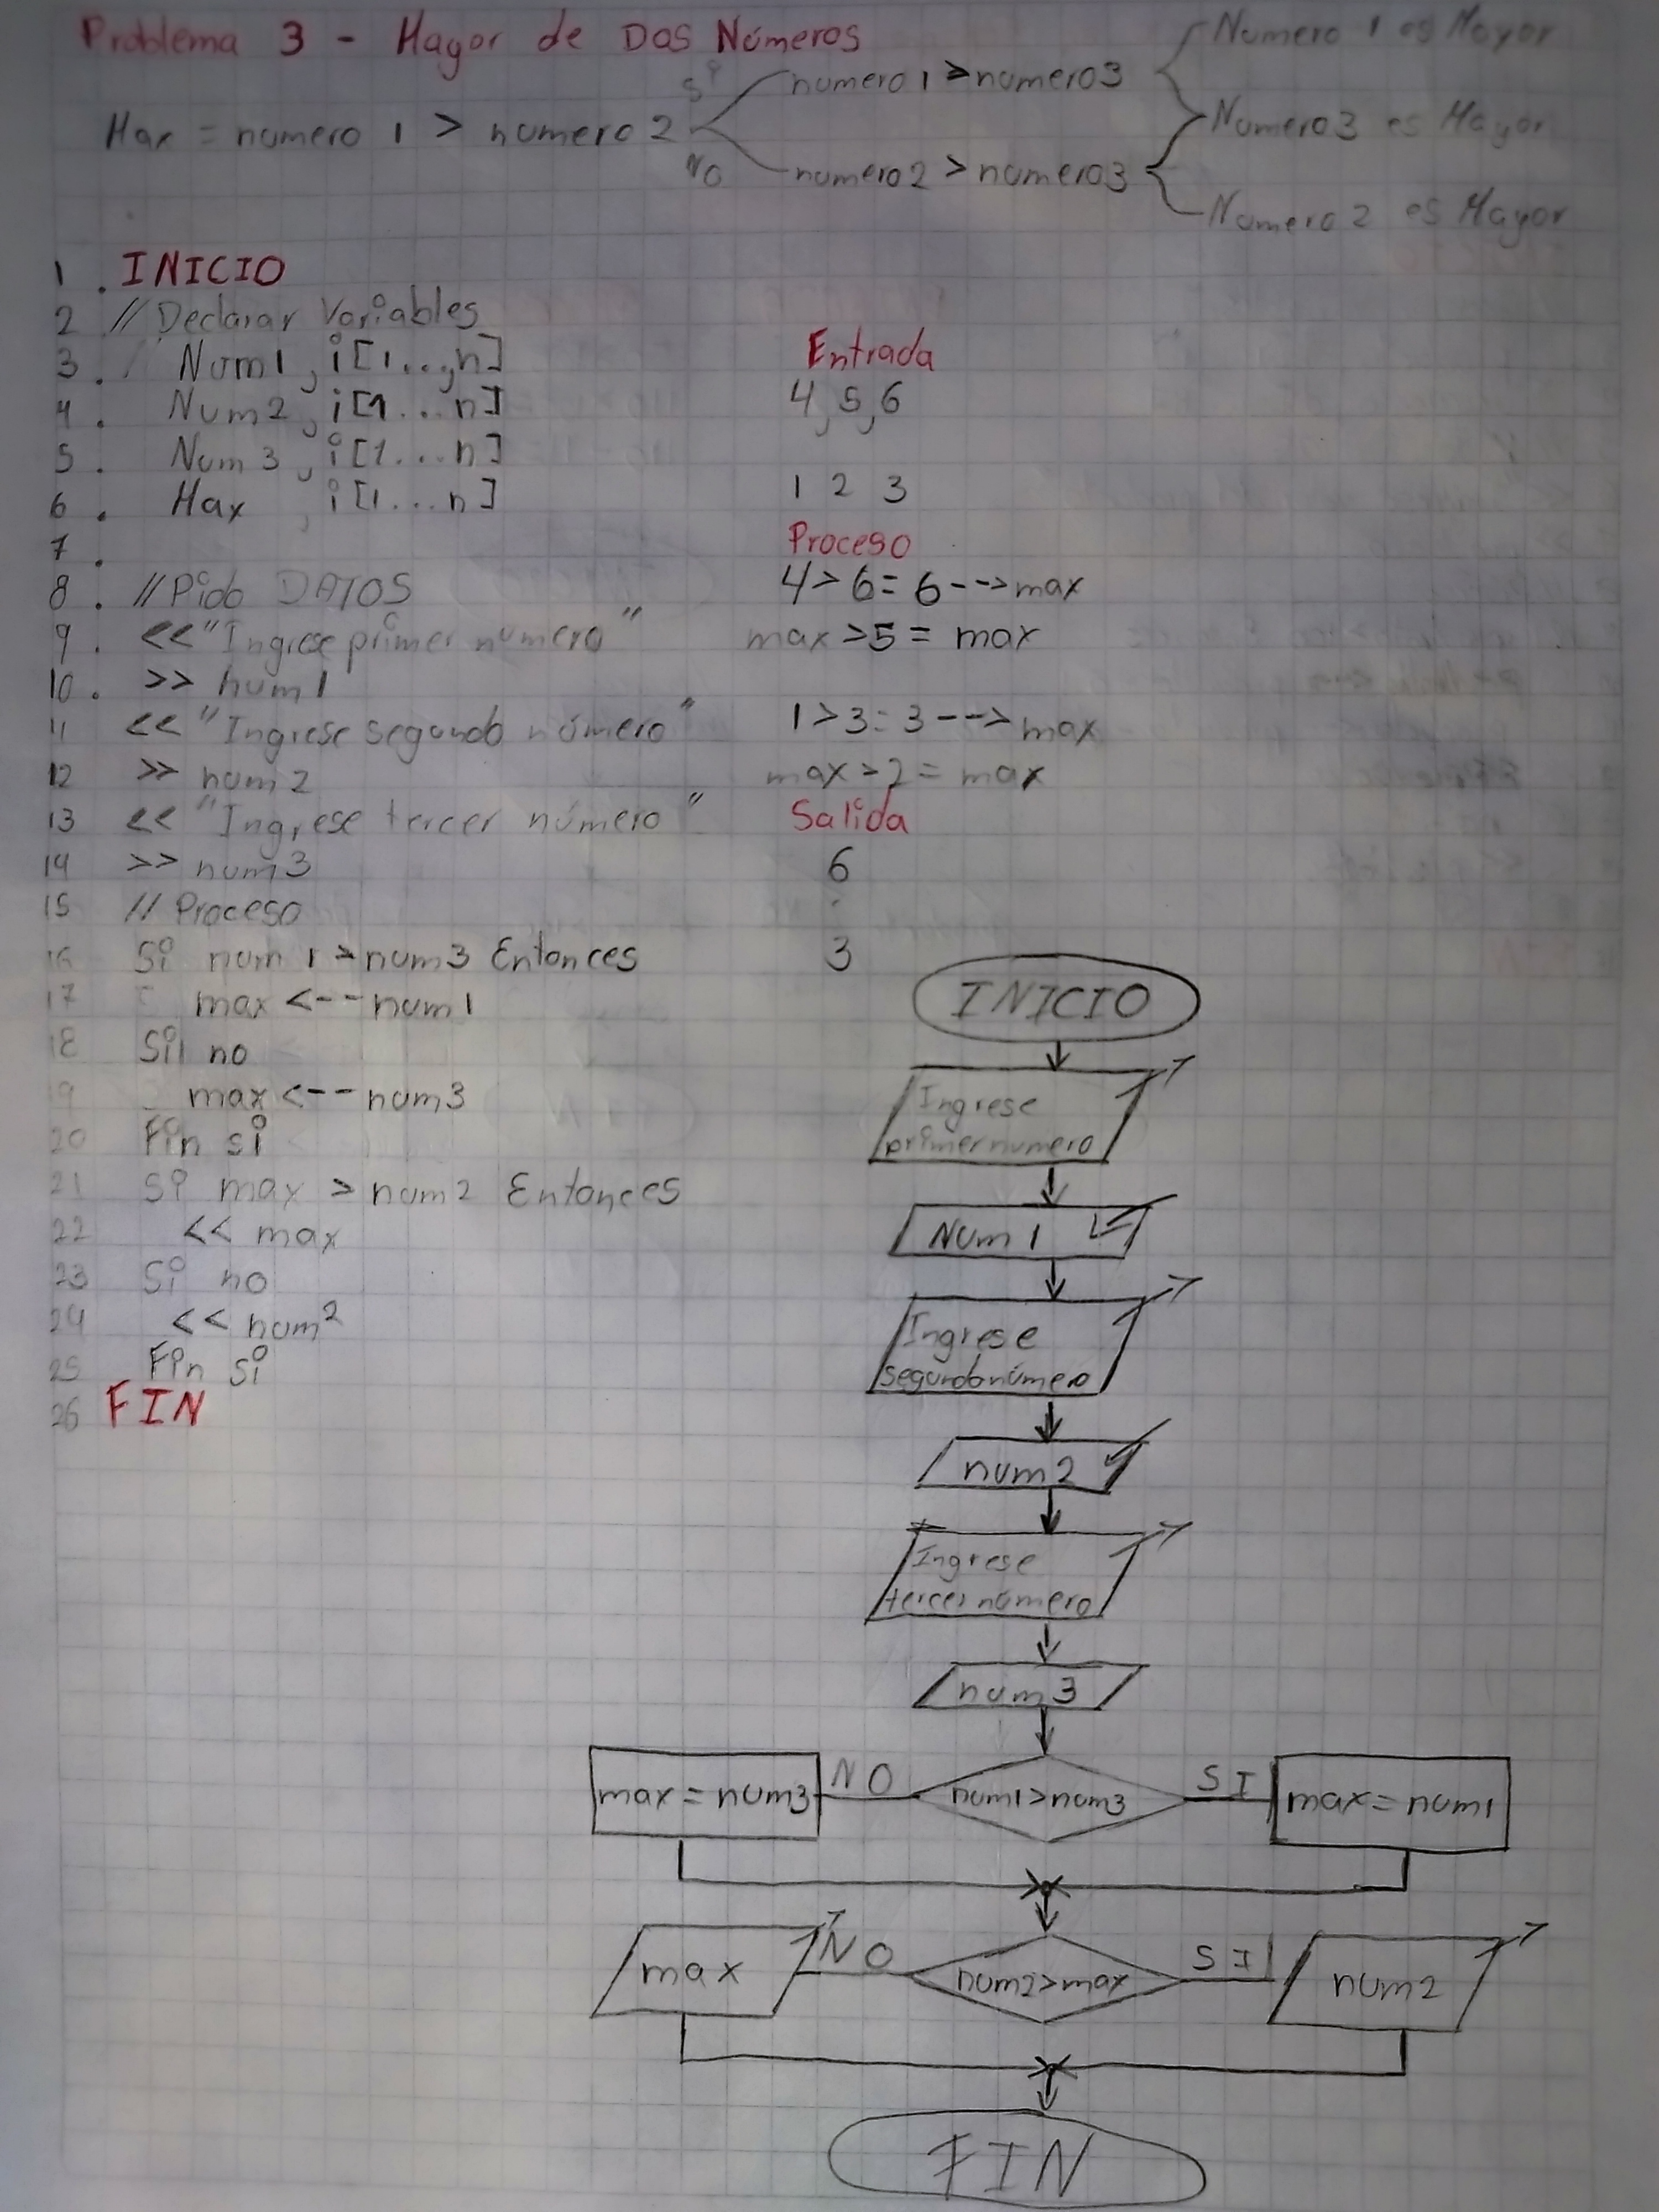 Problema 3 - Mayor de Dos Números
Max = numero 1 > numero 2
si
numero 1 > numero3
NO
numero2 > numero3
Numero 1 es Mayor
Numero3 es Mayor
Numero 2 es Mayor
1 . INICIO
2 // Declarar Variables
3 . Num1, i[1...,n]
4 . Num2, i[1...n]
5 . Num3, i[1...n]
6 . Max , i[1...n]
7 .
8 . //Pido DATOS
9 . <<"Ingrese primer numero"
10 . >> num1
11 <<"Ingrese segundo número"
12 >> num2
13 <<"Ingrese tercer número"
14 >> num3
15 // Proceso
16 Si num 1 > num3 Entonces
17 max <-- num1
18 Si no
19 max <-- num3
20 Fin si
21 Si max > num2 Entonces
22 << max
23 Si no
24 << num2
25 Fin si
26 FIN
Entrada
4, 5, 6
1 2 3
Proceso
4>6=6-->max
max>5= max
1>3=3-->max
max>2= max
Salida
6
3
INICIO
Ingrese
primer numero
Num1
Ingrese
segundo número
num2
Ingrese
tercer número
num3
max = num3
NO
num1>num3
SI
max = num1
max
NO
num2>max
SI
num2
FIN